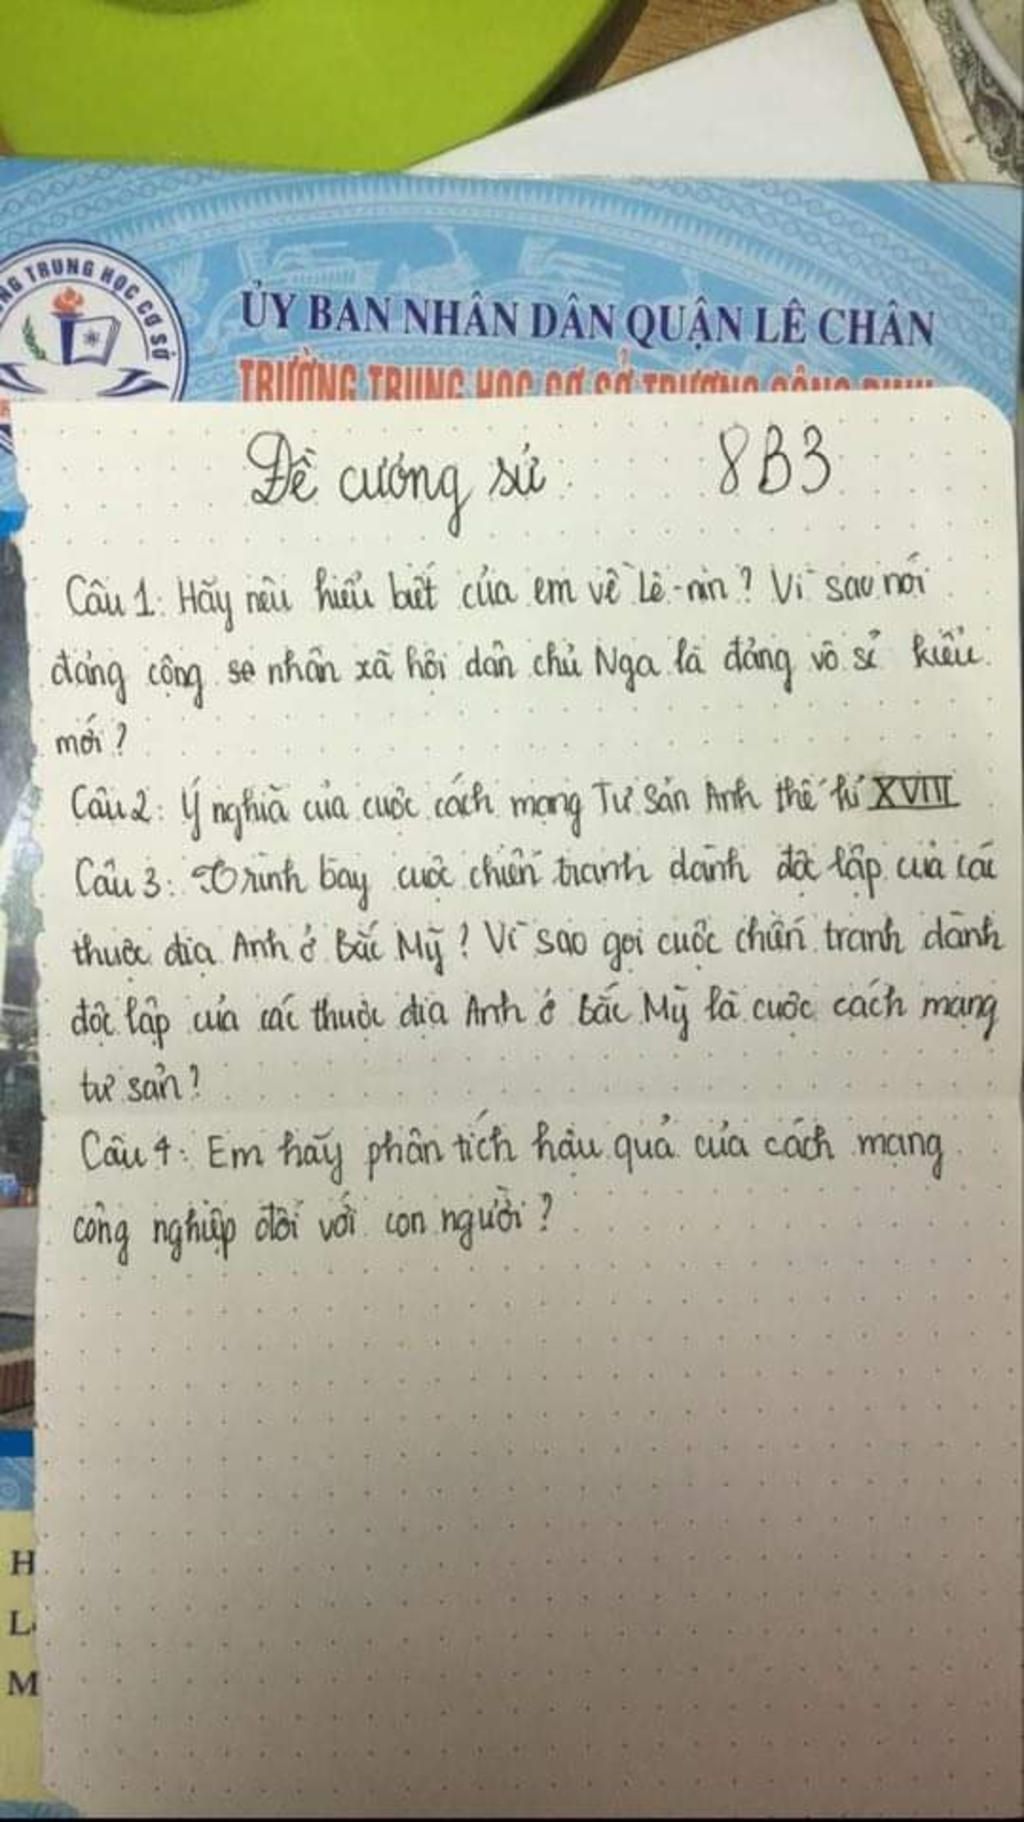 TRUNG HỌC CƠ SỞ
ỦY BAN NHÂN DÂN QUẬN LÊ CHÂN
TRƯỜNG TRUNG HỌC CƠ SỞ TRƯƠNG CÔNG ĐỊNH
Đề cương sử 8B3
Câu 1: Hãy nêu hiểu biết của em về Lê-nin? Vì sao nói
đảng công se nhân xã hội dân chủ Nga là đảng vô sỉ kiểu
mới?
Câu 2: Ý nghĩa của cuộc cách mạng Tư Sản Anh thế kỉ XVIII
Câu 3: Trình bày cuộc chiến tranh dành độc lập của các
thuộc địa Anh ở Bắc Mỹ? Vì sao gọi cuộc chiến tranh dành
độc lập của các thuộc địa Anh ở Bắc Mỹ là cuộc cách mạng
tư sản?
Câu 4: Em hãy phân tích hậu quả của cách mạng
công nghiệp đối với con người?
H
L
M